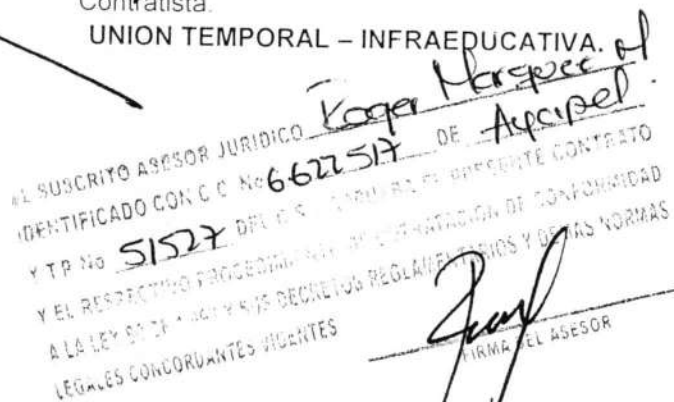 Contratista.
UNION TEMPORAL – INFRAEDUCATIVA.
EL SUSCRITO ASESOR JURIDICO Roger Marquez M
IDENTIFICADO CON C C No 6622517 DE Ayapel.
Y T P No 51527 DEL C S EL PRESENTE CONTRATO
Y EL RESPECTIVO PROCEDIMIENTO DE CONTRATACION DE CONFORMIDAD
A LA LEY 80 DE Y SUS DECRETOS REGLAMENTARIOS Y DEMAS NORMAS
LEGALES CONCORDANTES VIGENTES
FIRMA DEL ASESOR